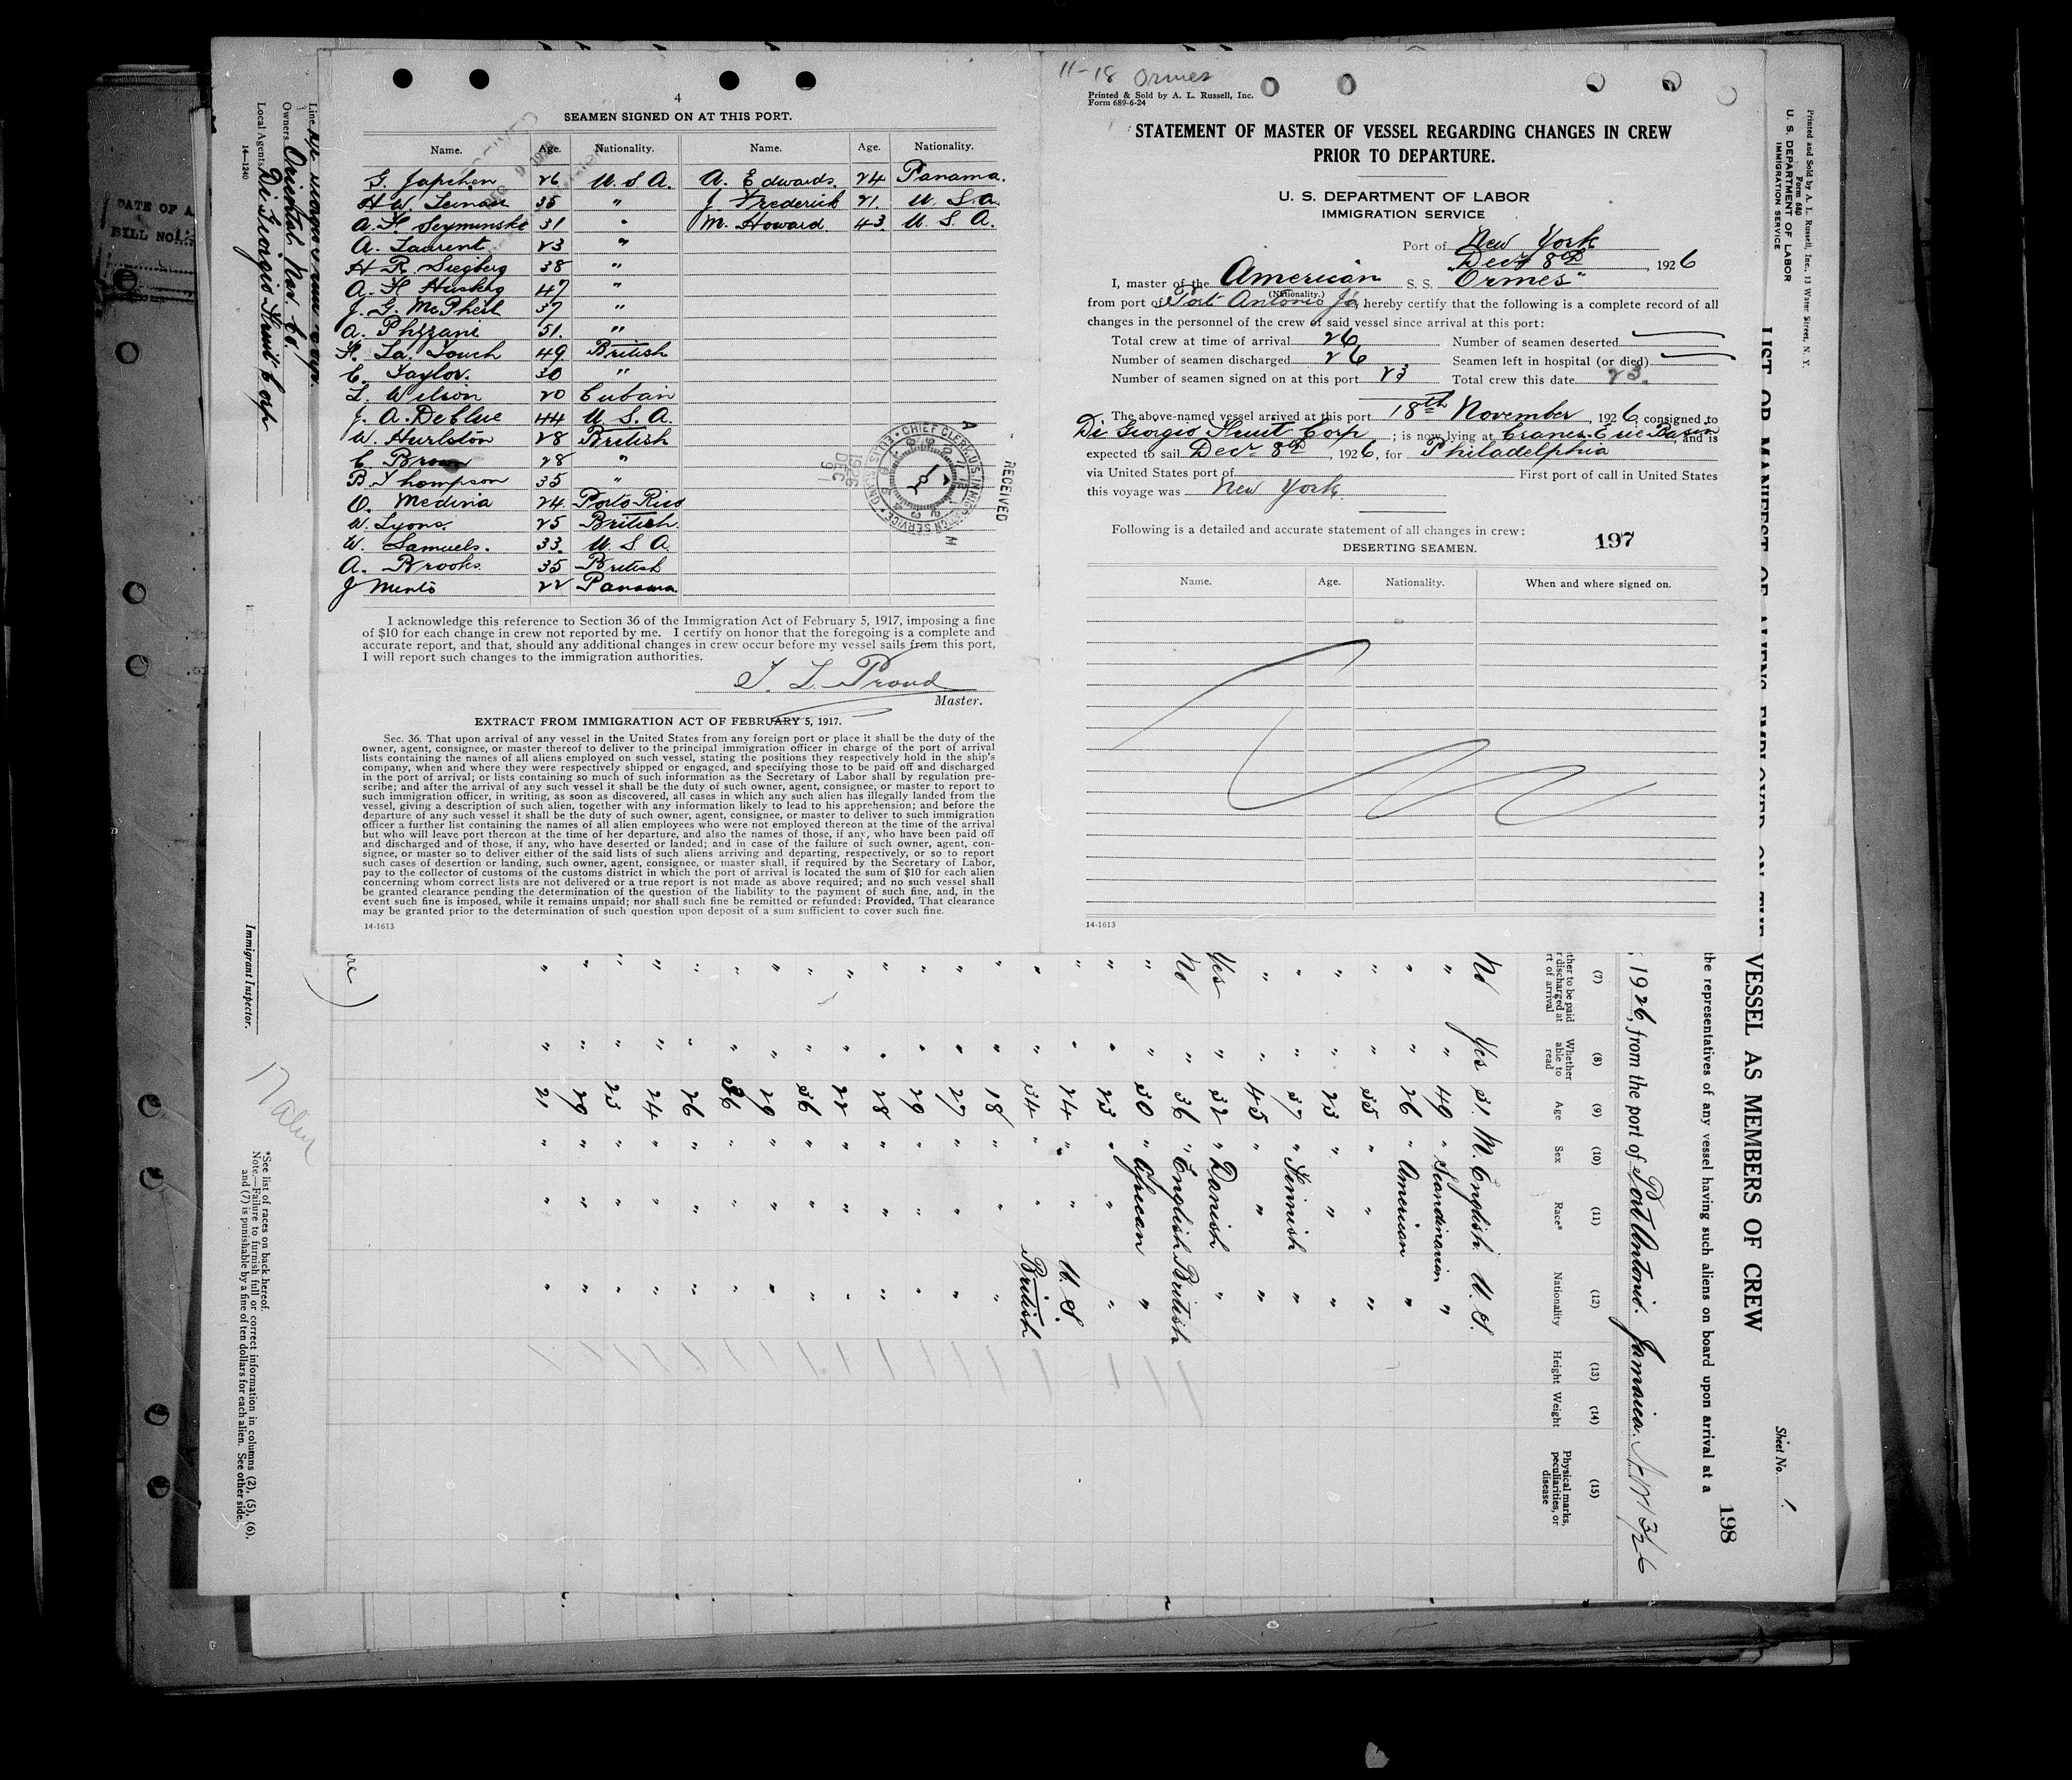 4
SEAMEN SIGNED ON AT THIS PORT.
Name. Age. Nationality. Name. Age. Nationality.
G. Japchen 26 U.S.A. A. Edwards. 24 Panama.
H. W. 35 " J. Frederick 21. U.S.A.
A. F. Seyminske 31 " M. Howard. 43. U.S.A.
A. Laurent 23 "
H. R. Siegberg 38 "
A. H. Huskey 47 "
J. G. McPheil 37 "
A. Phizzani 51. "
H. La Touch 49 British
C. Taylor. 30 "
L. Wilson 20 Cuban
J. A. DeBlue 44 U.S.A.
W. Hurlston 28 British
C. Brown 28 "
B. Thompson 35 "
O. Medina 24 Porto Rico
W. Lyons 25 British
W. Samuels. 33. U.S.A.
A. Brooks. 35 British
J Minto 22 Panama.
RECEIVED
CHIEF CLERK, U.S. IMMIGRATION SERVICE • ELLIS ISLAND
1926 DEC 9
I acknowledge this reference to Section 36 of the Immigration Act of February 5, 1917, imposing a fine
of $10 for each change in crew not reported by me. I certify on honor that the foregoing is a complete and
accurate report, and that, should any additional changes in crew occur before my vessel sails from this port,
I will report such changes to the immigration authorities.
T. L. Proud
Master.
EXTRACT FROM IMMIGRATION ACT OF FEBRUARY 5, 1917.
Sec. 36. That upon arrival of any vessel in the United States from any foreign port or place it shall be the duty of the
owner, agent, consignee, or master thereof to deliver to the principal immigration officer in charge of the port of arrival
lists containing the names of all aliens employed on such vessel, stating the positions they respectively hold in the ship's
company, when and where they were respectively shipped or engaged, and specifying those to be paid off and discharged
in the port of arrival; or lists containing so much of such information as the Secretary of Labor shall by regulation pre-
scribe; and after the arrival of any such vessel it shall be the duty of such owner, agent, consignee, or master to report to
such immigration officer, in writing, as soon as discovered, all cases in which any such alien has illegally landed from the
vessel, giving a description of such alien, together with any information likely to lead to his apprehension; and before the
departure of any such vessel it shall be the duty of such owner, agent, consignee, or master to deliver to such immigration
officer a further list containing the names of all alien employees who were not employed thereon at the time of the arrival
but who will leave port thereon at the time of her departure, and also the names of those, if any, who have been paid off
and discharged and of those, if any, who have deserted or landed; and in case of the failure of such owner, agent, con-
signee, or master so to deliver either of the said lists of such aliens arriving and departing, respectively, or so to report
such cases of desertion or landing, such owner, agent, consignee, or master shall, if required by the Secretary of Labor,
pay to the collector of customs of the customs district in which the port of arrival is located the sum of $10 for each alien
concerning whom correct lists are not delivered or a true report is not made as above required; and no such vessel shall
be granted clearance pending the determination of the question of the liability to the payment of such fine, and, in the
event such fine is imposed, while it remains unpaid; nor shall such fine be remitted or refunded: Provided, That clearance
may be granted prior to the determination of such question upon deposit of a sum sufficient to cover such fine.
14-1613
11-18 Ormes
Printed & Sold by A. L. Russell, Inc.
Form 689-6-24
STATEMENT OF MASTER OF VESSEL REGARDING CHANGES IN CREW
PRIOR TO DEPARTURE.
U. S. DEPARTMENT OF LABOR
IMMIGRATION SERVICE
Port of New York
Decr 8th, 1926
I, master of the American S. S. "Ormes"
(Nationality.)
from port of Port Antonio Ja, hereby certify that the following is a complete record of all
changes in the personnel of the crew of said vessel since arrival at this port:
Total crew at time of arrival 26 Number of seamen deserted
Number of seamen discharged 26 Seamen left in hospital (or died)
Number of seamen signed on at this port 23 Total crew this date 23.
The above-named vessel arrived at this port 18th November, 1926, consigned to
Di Giorgio Fruit Corp; is now lying at Cranes. Erie Basin and is
expected to sail Decr 8th, 1926, for Philadelphia
via United States port of First port of call in United States
this voyage was New York
Following is a detailed and accurate statement of all changes in crew:
197
DESERTING SEAMEN.
Name. Age. Nationality. When and where signed on.
14-1613
Printed and Sold by A. L. Russell, Inc., 13 Water Street, N. Y.
Form 680
U. S. DEPARTMENT OF LABOR
IMMIGRATION SERVICE
Sheet No. 1.
198
LIST OR MANIFEST OF ALIENS EMPLOYED ON THE VESSEL AS MEMBERS OF CREW
the representatives of any vessel having such aliens on board upon arrival at a
, 1926, from the port of Port Antonio. Jamaica.
(7) (8) (9) (10) (11) (12) (13) (14) (15)
ther to be paid r discharged at rt of arrival Whether able to read Age Sex Race* Nationality Height Weight Physical marks, peculiarities, or disease
No Yes 31. M. English U.S.
" " 49 " Scandinavian "
" " 26 " American "
" " 35 " " "
" " 23 " " "
" " 37 " Finnish "
" " 45 " " "
Yes " 32 " Danish "
No " 36 " English British
" " 30 " African "
" " 23 " " "
" " 24 " " U.S.
" " 34 " " British
" " 18 " " "
" " 27 " " "
" " 29 " " "
" " 28 " " "
" " 22 " " "
" " 36 " " "
" " 29 " " "
" " 36 " " "
" " 26 " " "
" " 24 " " "
" " 23 " " "
" " 29 " " "
" " 21 " " "
Line
Owners Oriental Nav. Co.
Local Agents Di Giorgio Fruit Corp
14-1240
Immigrant Inspector.
*See list of races on back hereof.
Note.—Failure to furnish full or correct information in columns (2), (5), (6),
and (7) is punishable by a fine of ten dollars for each alien. See other side.
DATE OF A
BILL NO.